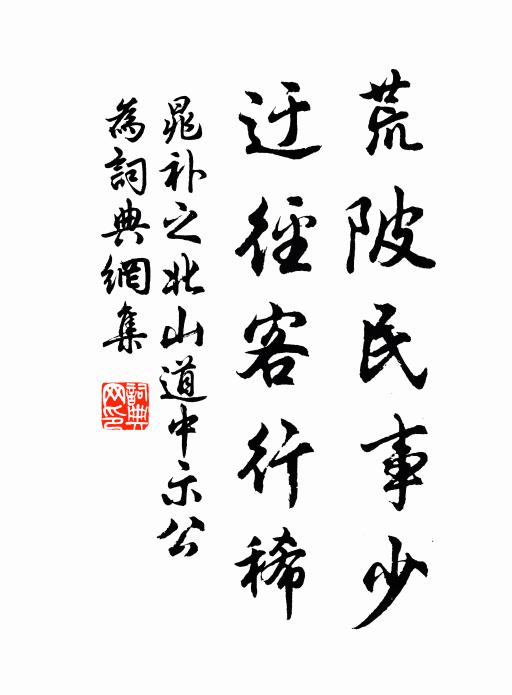 荒陂民事少
迂徑客行稀
晁补之北山道中示公
為詞典網集
詞典
网印